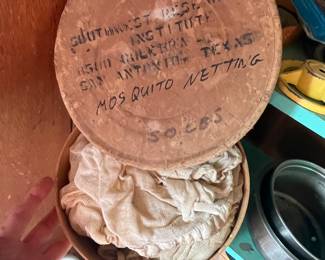 SOUTHWEST RESE
INSTITUTE
8500 CULEBRA
SAN ANTONIO TEXAS
MOSQUITO NETTING
50 LBS